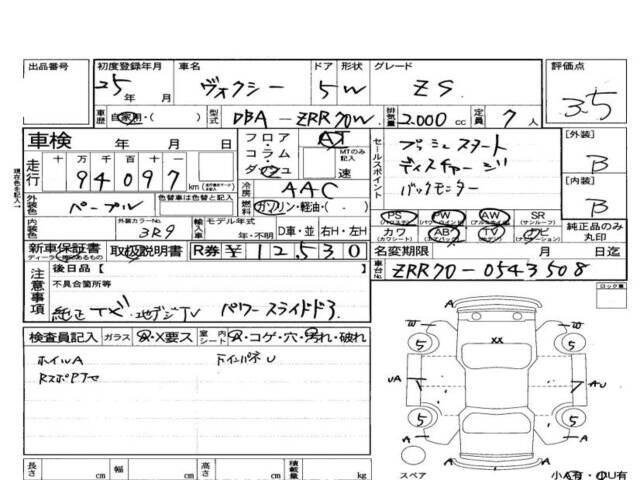 出品番号 初度登録年月 車名 ドア 形状 グレード 評価点
25年 月 ヴォクシー 5 W ZS 3.5
車歴 自家用・( ) 型式 DBA-ZRR70W 排気量 2.000 cc 定員 7人
車検 年 月 日 フロア・コラム・ダッシュ AT MTのみ記入 速
走行 十 万 千 百 十 一
94097 km
冷房 AAC
セールスポイント プッシュスタート
ディスチャージ
バックモニター
[外装] B
[内装] B
現在色を記入→
外装色 パープル 色替車は元色を記入
燃料 ガソリン・軽油・( )
内装色 外装カラーNo. 3R9 輸入車 モデル年式 年・不明 D車・並 右H・左H
PS (パワステ) PW (パワーウインド) AW (アルミホイール) SR (サンルーフ)
カワ (カワシート) AB (エアバッグ) TV ナビ (ナビゲーション) 純正品のみ丸印
新車保証書 取扱説明書 R券 ¥12,530
名変期限 月 日迄
車台No. ZRR70-0543508
注意事項 後日品【 】
不具合箇所等
地デジTV パワースライドドア
検査員記入 ガラス A・X要ス 室内 シート A・コゲ・穴・汚れ・破れ
ホイルA
インパネU
長さ cm 幅 cm 高さ cm 積載量 kg
W W
5 5
XX
UA AU
5 5
A A
A A
スペア 小A有・小U有